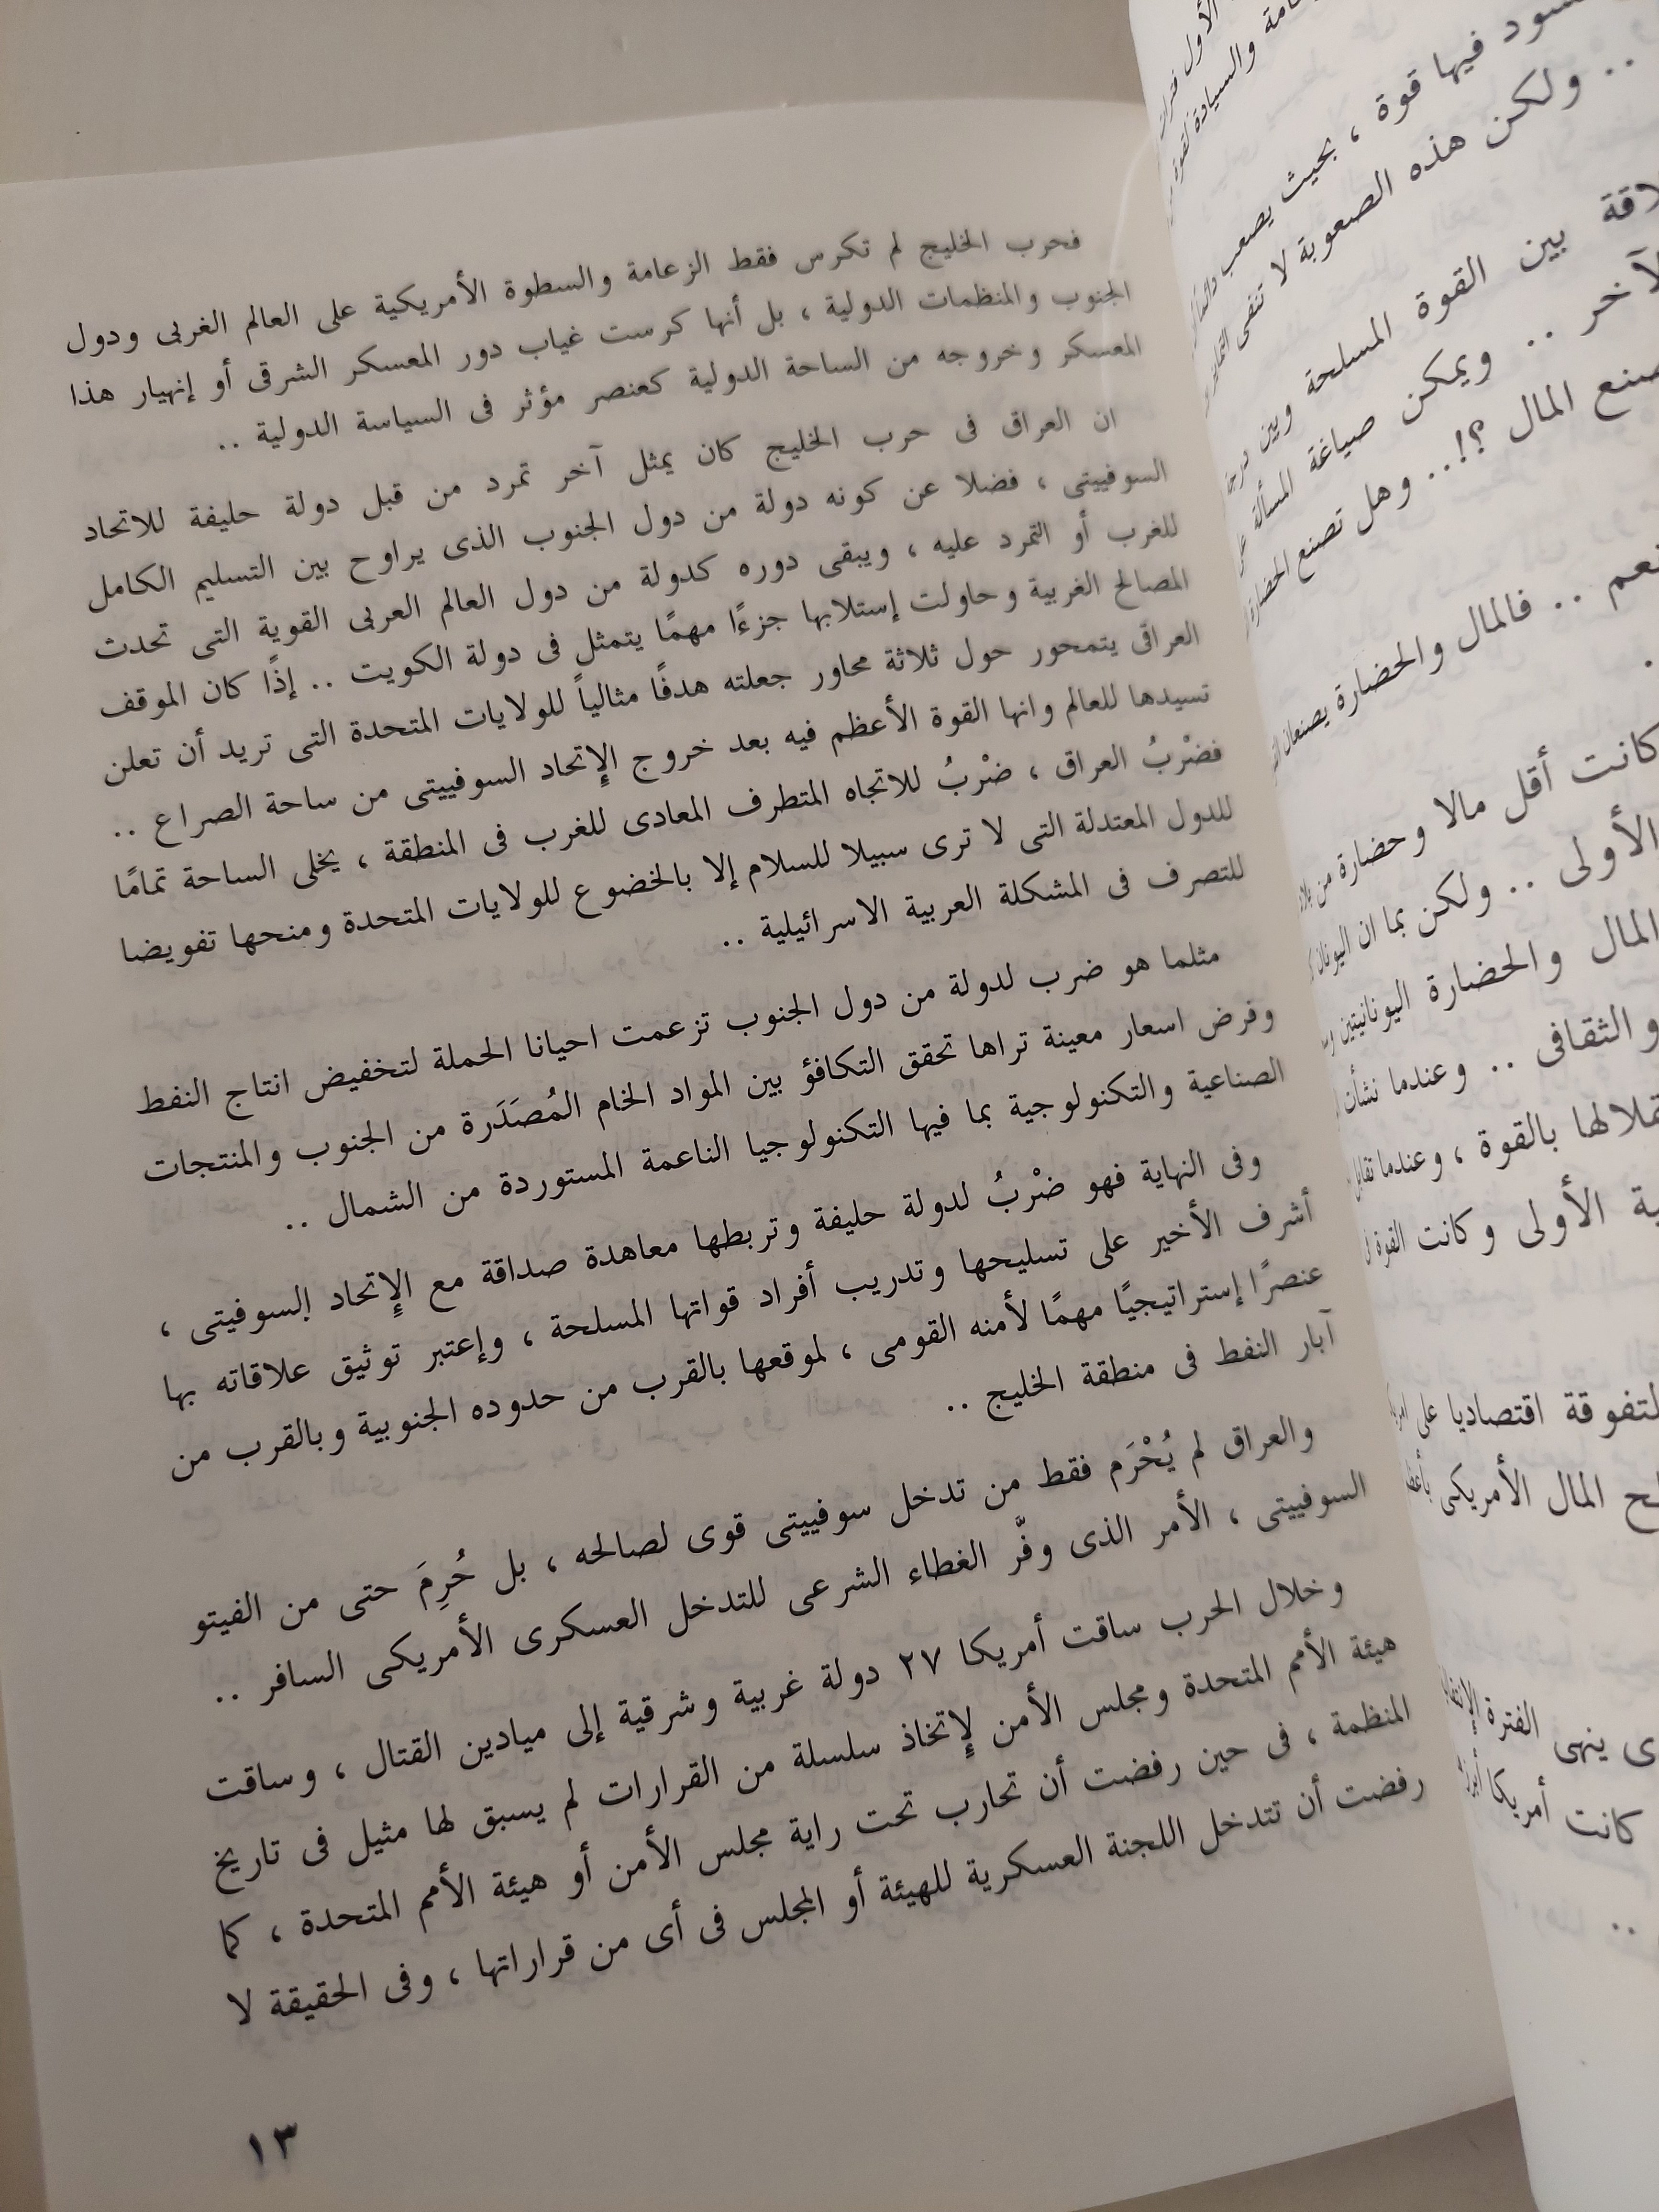 فحرب الخليج لم تكرس فقط الزعامة والسطوة الأمريكية على العالم الغربى ودول
الجنوب والمنظمات الدولية ، بل أنها كرست غياب دور المعسكر الشرقى أو إنهيار هذا
المعسكر وخروجه من الساحة الدولية كعنصر مؤثر فى السياسة الدولية ..
ان العراق فى حرب الخليج كان يمثل آخر تمرد من قبل دولة حليفة للاتحاد
السوفييتى ، فضلا عن كونه دولة من دول الجنوب الذى يراوح بين التسليم الكامل
للغرب أو التمرد عليه ، ويبقى دوره كدولة من دول العالم العربى القوية التى تحدث
المصالح الغربية وحاولت إستلابها جزءًا مهمًا يتمثل فى دولة الكويت .. إذًا كان الموقف
العراقى يتمحور حول ثلاثة محاور جعلته هدفًا مثالياً للولايات المتحدة التى تريد أن تعلن
تسيدها للعالم وانها القوة الأعظم فيه بعد خروج الإتحاد السوفييتى من ساحة الصراع ..
فضْربُ العراق ، ضْربُ للاتجاه المتطرف المعادى للغرب فى المنطقة ، يخلى الساحة تمامًا
للدول المعتدلة التى لا ترى سبيلا للسلام إلا بالخضوع للولايات المتحدة ومنحها تفويضا
للتصرف فى المشكلة العربية الاسرائيلية ..
مثلما هو ضرب لدولة من دول الجنوب تزعمت احيانا الحملة لتخفيض انتاج النفط
وفرض اسعار معينة تراها تحقق التكافؤ بين المواد الخام المُصَدَرة من الجنوب والمنتجات
الصناعية والتكنولوجية بما فيها التكنولوجيا الناعمة المستوردة من الشمال ..
وفى النهاية فهو ضْربُ لدولة حليفة وتربطها معاهدة صداقة مع الإتحاد السوفيتى ،
أشرف الأخير على تسليحها وتدريب أفراد قواتها المسلحة ، وإعتبر توثيق علاقاته بها
عنصرًا إستراتيجيًا مهمًا لأمنه القومى ، لموقعها بالقرب من حدوده الجنوبية وبالقرب من
آبار النفط فى منطقة الخليج ..
والعراق لم يُحْرَم فقط من تدخل سوفييتى قوى لصالحه ، بل حُرِمَ حتى من الفيتو
السوفييتى ، الأمر الذى وفّر الغطاء الشرعى للتدخل العسكرى الأمريكى السافر ..
وخلال الحرب ساقت أمريكا ٢٧ دولة غربية وشرقية إلى ميادين القتال ، وساقت
هيئة الأمم المتحدة ومجلس الأمن لإتخاذ سلسلة من القرارات لم يسبق لها مثيل فى تاريخ
المنظمة ، فى حين رفضت أن تحارب تحت راية مجلس الأمن أو هيئة الأمم المتحدة ، كما
رفضت أن تتدخل اللجنة العسكرية للهيئة أو المجلس فى أى من قراراتها ، وفى الحقيقة لا
١٣
والسيادة
فيها قوة ، بحيث يصعب
.. ولكن هذه الصعوبة لا تنفى
بين القوة المسلحة وبين
.. ويمكن صياغة المسألة
المال ؟!.. وهل تصنع الحضارة
.. فالمال والحضارة يصنعان
كانت أقل مالا وحضارة من
الأولى .. ولكن بما ان اليونان
المال والحضارة اليونانيتين
والثقافى .. وعندما نشأت
بالقوة ، وعندما
الأولى وكانت القوة
اقتصاديا على
المال الأمريكى
ينهى الفترة
كانت أمريكا
..